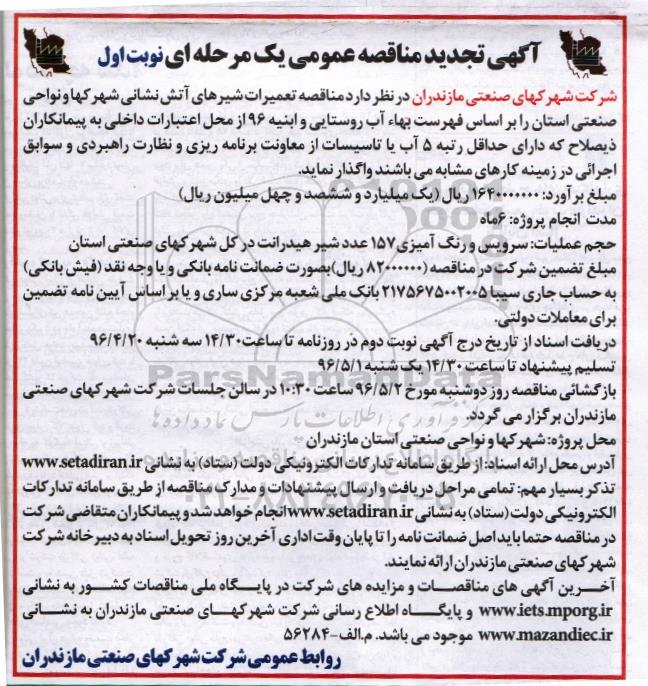 آگهی تجدید مناقصه عمومی یک مرحله ای نوبت اول
شرکت شهرکهای صنعتی مازندران در نظر دارد مناقصه تعمیرات شیرهای آتش نشانی شهرکها و نواحی
صنعتی استان را بر اساس فهرست بهاء آب روستایی و ابنیه ۹۶ از محل اعتبارات داخلی به پیمانکاران
ذیصلاح که دارای حداقل رتبه ۵ آب یا تاسیسات از معاونت برنامه ریزی و نظارت راهبردی و سوابق
اجرائی در زمینه کارهای مشابه می باشند واگذار نماید.
مبلغ برآورد: ۱۶۴۰۰۰۰۰۰۰ ریال (یک میلیارد و ششصد و چهل میلیون ریال)
مدت انجام پروژه: ۶ماه
حجم عملیات: سرویس و رنگ آمیزی ۱۵۷ عدد شیر هیدرانت در کل شهرکهای صنعتی استان
مبلغ تضمین شرکت در مناقصه (۸۲۰۰۰۰۰۰ ریال) بصورت ضمانت نامه بانکی و یا وجه نقد (فیش بانکی)
به حساب جاری سیبا ۲۱۷۵۶۷۵۰۰۲۰۰۵ بانک ملی شعبه مرکزی ساری و یا بر اساس آیین نامه تضمین
برای معاملات دولتی.
دریافت اسناد از تاریخ درج آگهی نوبت دوم در روزنامه تا ساعت ۱۴/۳۰ سه شنبه ۹۶/۴/۲۰
تسلیم پیشنهاد تا ساعت ۱۴/۳۰ یک شنبه ۹۶/۵/۱
بازگشائی مناقصه روز دوشنبه مورخ ۹۶/۵/۲ ساعت ۱۰:۳۰ در سالن جلسات شرکت شهرکهای صنعتی
مازندران برگزار می گردد.
محل پروژه: شهرکها و نواحی صنعتی استان مازندران
آدرس محل ارائه اسناد: از طریق سامانه تدارکات الکترونیکی دولت (ستاد) به نشانی www.setadiran.ir
تذکر بسیار مهم: تمامی مراحل دریافت و ارسال پیشنهادات و مدارک مناقصه از طریق سامانه تدارکات
الکترونیکی دولت (ستاد) به نشانی www.setadiran.ir انجام خواهد شد و پیمانکاران متقاضی شرکت
در مناقصه حتما باید اصل ضمانت نامه را تا پایان وقت اداری آخرین روز تحویل اسناد به دبیرخانه شرکت
شهرکهای صنعتی مازندران ارائه نمایند.
آخرین آگهی های مناقصات و مزایده های شرکت در پایگاه ملی مناقصات کشور به نشانی
www.iets.mporg.ir و پایگاه اطلاع رسانی شرکت شهرکهای صنعتی مازندران به نشانی
www.mazandiec.ir موجود می باشد. م.الف-۵۶۲۸۴
روابط عمومی شرکت شهرکهای صنعتی مازندران
ParsNamadData